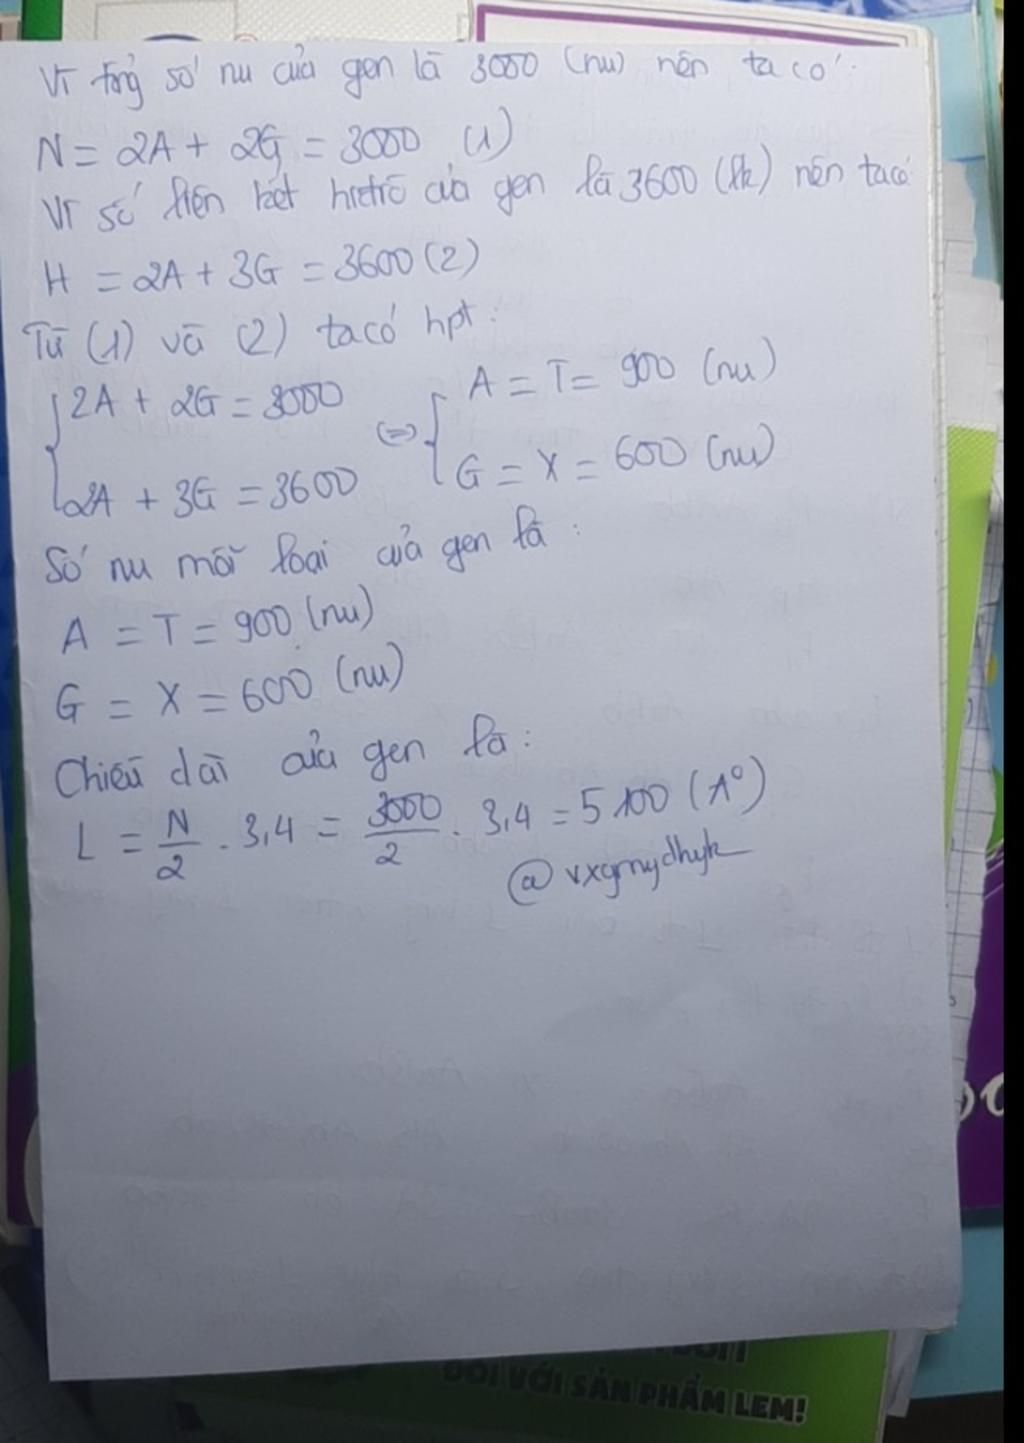 Vì tổng số nu của gen là 3000 (nu) nên ta có:
N = 2A + 2G = 3000 (1)
Vì số liên kết hiđrô của gen là 3600 (lk) nên ta có
H = 2A + 3G = 3600 (2)
Từ (1) và (2) ta có hpt:
2A + 2G = 3000 <=> A = T = 900 (nu)
2A + 3G = 3600 G = X = 600 (nu)
Số nu mỗi loại của gen là:
A = T = 900 (nu)
G = X = 600 (nu)
Chiều dài của gen là:
L = N/2 . 3,4 = 3000/2 . 3,4 = 5100 (A°)
ĐỐI VỚI SẢN PHẨM LEM!